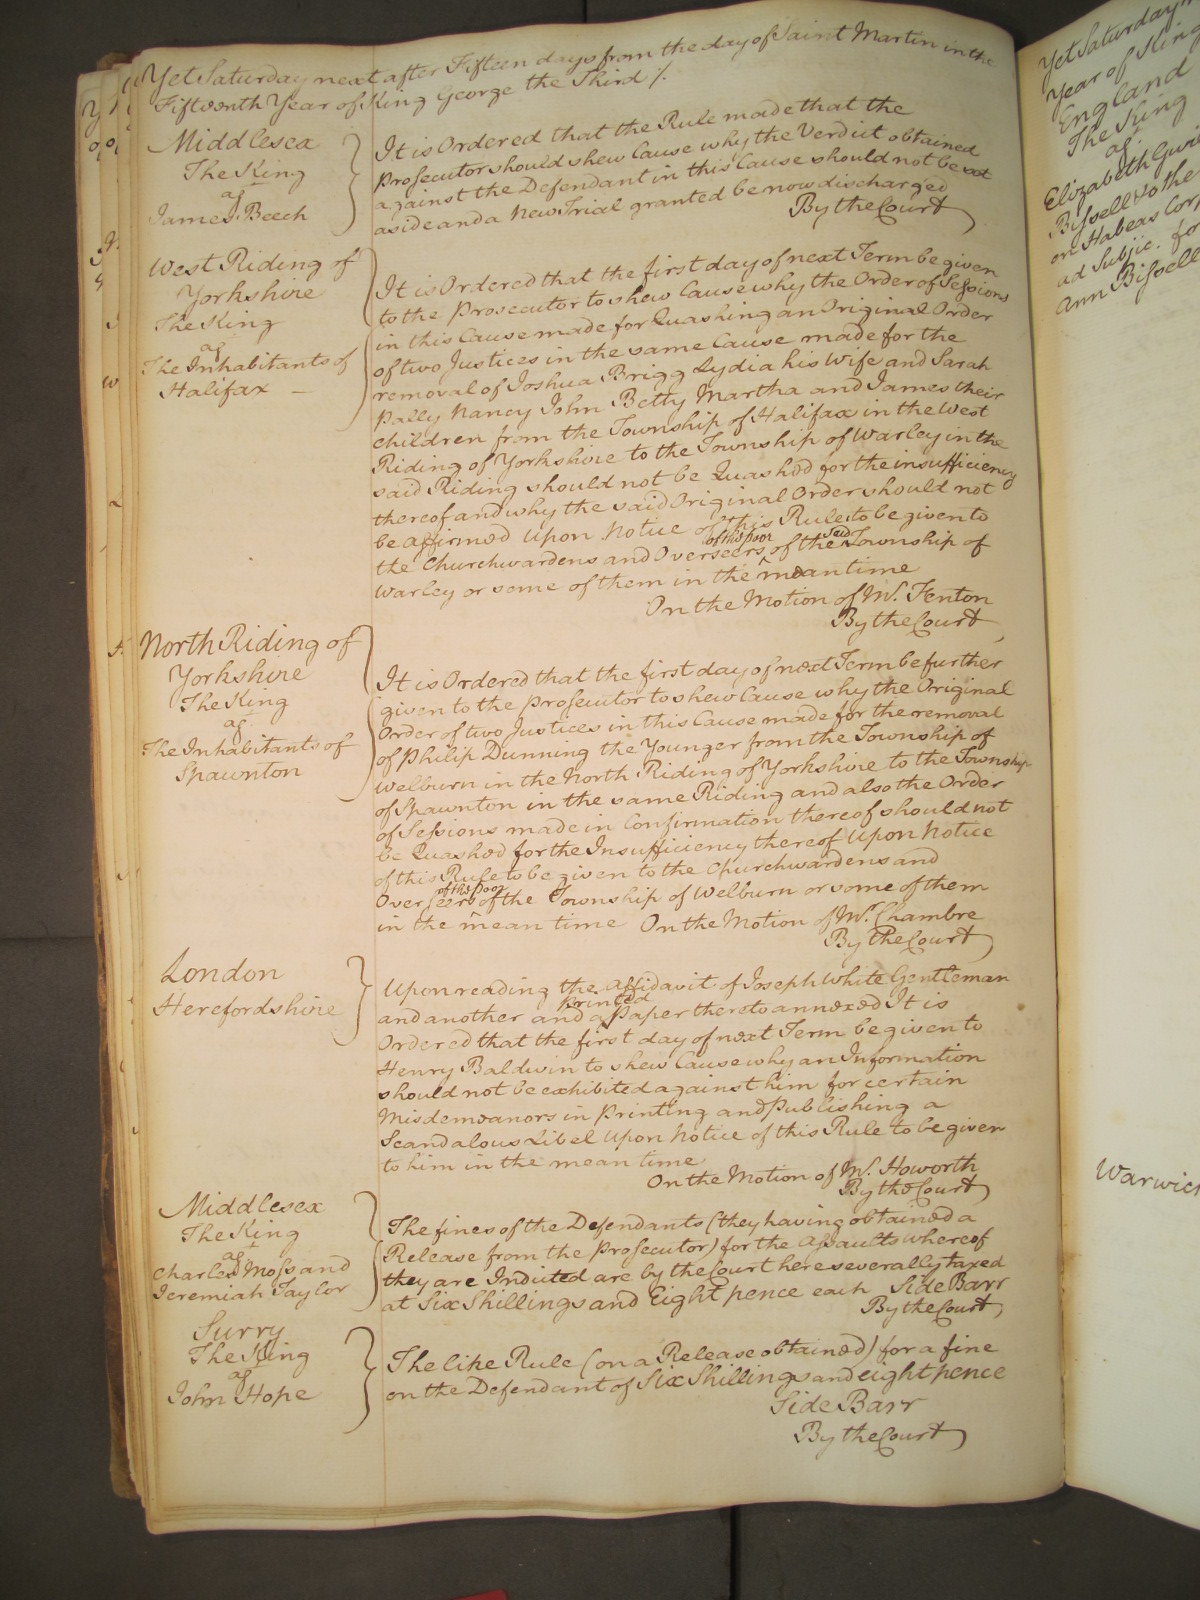 Yet Saturday next after Fifteen days from the day of Saint Martin in the
Fifteenth Year of King George the Third /.
Middlesex
The King
agt
James Beech
It is Ordered that the Rule made that the
Prosecutor should shew Cause why the Verdict obtained
against the Defendant in this Cause should not be set
aside and a New Trial granted be now discharged
By the Court
West Riding of
Yorkshire
The King
agt
The Inhabitants of
Halifax —
It is Ordered that the first day of next Term be given
to the Prosecutor to shew Cause why the Order of Sessions
in this Cause made for Quashing an Original Order
of two Justices in the same Cause made for the
removal of Joshua Brigg Lydia his Wife and Sarah
Pally Nancy John Betty Martha and James their
Children from the Township of Halifax in the West
Riding of Yorkshire to the Township of Warley in the
said Riding should not be Quashed for the insufficiency
thereof and why the said Original Order should not
be affirmed Upon Notice of this Rule to be given to
of the poor said
the Churchwardens and Overseers of the Township of
Warley or some of them in the mean time
On the Motion of Mr. Fenton
By the Court
North Riding of
Yorkshire
The King
agt
The Inhabitants of
Spawnton
It is Ordered that the first day of next Term be further
given to the Prosecutor to shew Cause why the Original
Order of two Justices in this Cause made for the removal
of Philip Dunning the Younger from the Township of
Welburn in the North Riding of Yorkshire to the Township
of Spawnton in the same Riding and also the Order
of Sessions made in Confirmation thereof should not
be Quashed for the Insufficiency thereof Upon Notice
of this Rule to be given to the Churchwardens and
of the poor
Overseers of the Township of Welburn or some of them
in the mean time On the Motion of Mr. Chambre
By the Court
London
Herefordshire
Upon reading the affidavit of Joseph White Gentleman
printed
and another and a Paper thereto annexed It is
Ordered that the first day of next Term be given to
Henry Baldwin to shew Cause why an Information
should not be exhibited against him for certain
Misdemeanors in Printing and Publishing a
Scandalous Libel Upon Notice of this Rule to be given
to him in the mean time
On the Motion of Mr. Howorth
By the Court
Middlesex
The King
agt
Charles Moss and
Jeremiah Taylor
The fines of the Defendants (they having obtained a
Release from the Prosecutor) for the Assaults whereof
they are Indicted are by the Court here severally taxed
at Six Shillings and Eight pence each Side Barr
By the Court
Surry
The King
agt
John Hope
The like Rule (on a Release obtained) for a fine
on the Defendant of Six Shillings and eight pence
Side Barr
By the Court
Yet Saturday
Year of King
England
The King
agt
Elizabeth
Bissell to the
on Habeas Corp
ad Subjic. fo
Ann Bissell
Warwic